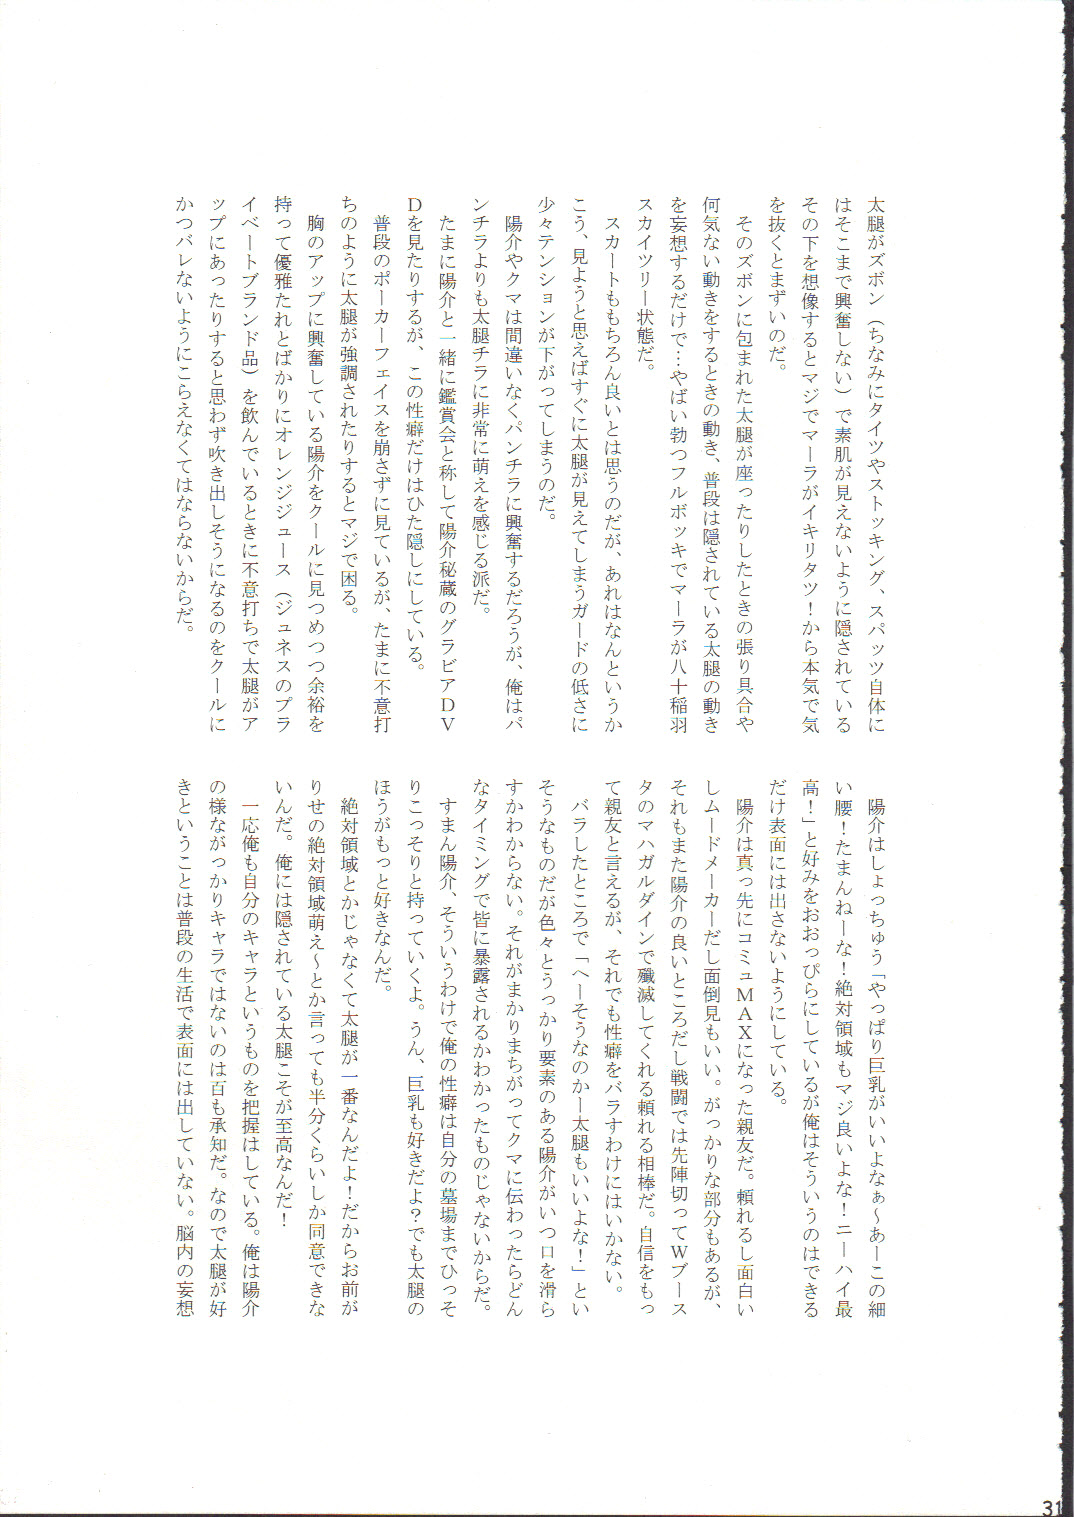 太腿がズボン（ちなみにタイツやストッキング、スパッツ自体に
はそこまで興奮しない）で素肌が見えないように隠されている
その下を想像するとマジでマーラがイキリタツ！から本気で気
を抜くとまずいのだ。
　そのズボンに包まれた太腿が座ったりしたときの張り具合や
何気ない動きをするときの動き、普段は隠されている太腿の動き
を妄想するだけで…やばい勃つフルボッキでマーラが八十稲羽
スカイツリー状態だ。
　スカートももちろん良いとは思うのだが、あれはなんというか
こう、見ようと思えばすぐに太腿が見えてしまうガードの低さに
少々テンションが下がってしまうのだ。
　陽介やクマは間違いなくパンチラに興奮するだろうが、俺はパ
ンチラよりも太腿チラに非常に萌えを感じる派だ。
　たまに陽介と一緒に鑑賞会と称して陽介秘蔵のグラビアDV
Dを見たりするが、この性癖だけはひた隠しにしている。
　普段のポーカーフェイスを崩さずに見ているが、たまに不意打
ちのように太腿が強調されたりするとマジで困る。
　胸のアップに興奮している陽介をクールに見つめつつ余裕を
持って優雅たれとばかりにオレンジジュース（ジュネスのプラ
イベートブランド品）を飲んでいるときに不意打ちで太腿がア
ップにあったりすると思わず吹き出しそうになるのをクールに
かつバレないようにこらえなくてはならないからだ。
　陽介はしょっちゅう「やっぱり巨乳がいいよなぁ～あーこの細
い腰！たまんねーな！絶対領域もマジ良いよな！ニーハイ最
高！」と好みをおおっぴらにしているが俺はそういうのはできる
だけ表面には出さないようにしている。
　陽介は真っ先にコミュMAXになった親友だ。頼れるし面白い
しムードメーカーだし面倒見もいい。がっかりな部分もあるが、
それもまた陽介の良いところだし戦闘では先陣切ってWブース
タのマハガルダインで殲滅してくれる頼れる相棒だ。自信をもっ
て親友と言えるが、それでも性癖をバラすわけにはいかない。
　バラしたところで「へーそうなのかー太腿もいいよな！」とい
そうなものだが色々とうっかり要素のある陽介がいつ口を滑ら
すかわからない。それがまかりまちがってクマに伝わったらどん
なタイミングで皆に暴露されるかわかったものじゃないからだ。
　すまん陽介、そういうわけで俺の性癖は自分の墓場までひっそ
りこっそりと持っていくよ。うん、巨乳も好きだよ？でも太腿の
ほうがもっと好きなんだ。
　絶対領域とかじゃなくて太腿が一番なんだよ！だからお前が
りせの絶対領域萌え～とか言っても半分くらいしか同意できな
いんだ。俺には隠されている太腿こそが至高なんだ！
　一応俺も自分のキャラというものを把握はしている。俺は陽介
の様ながっかりキャラではないのは百も承知だ。なので太腿が好
きということは普段の生活で表面には出していない。脳内の妄想
31